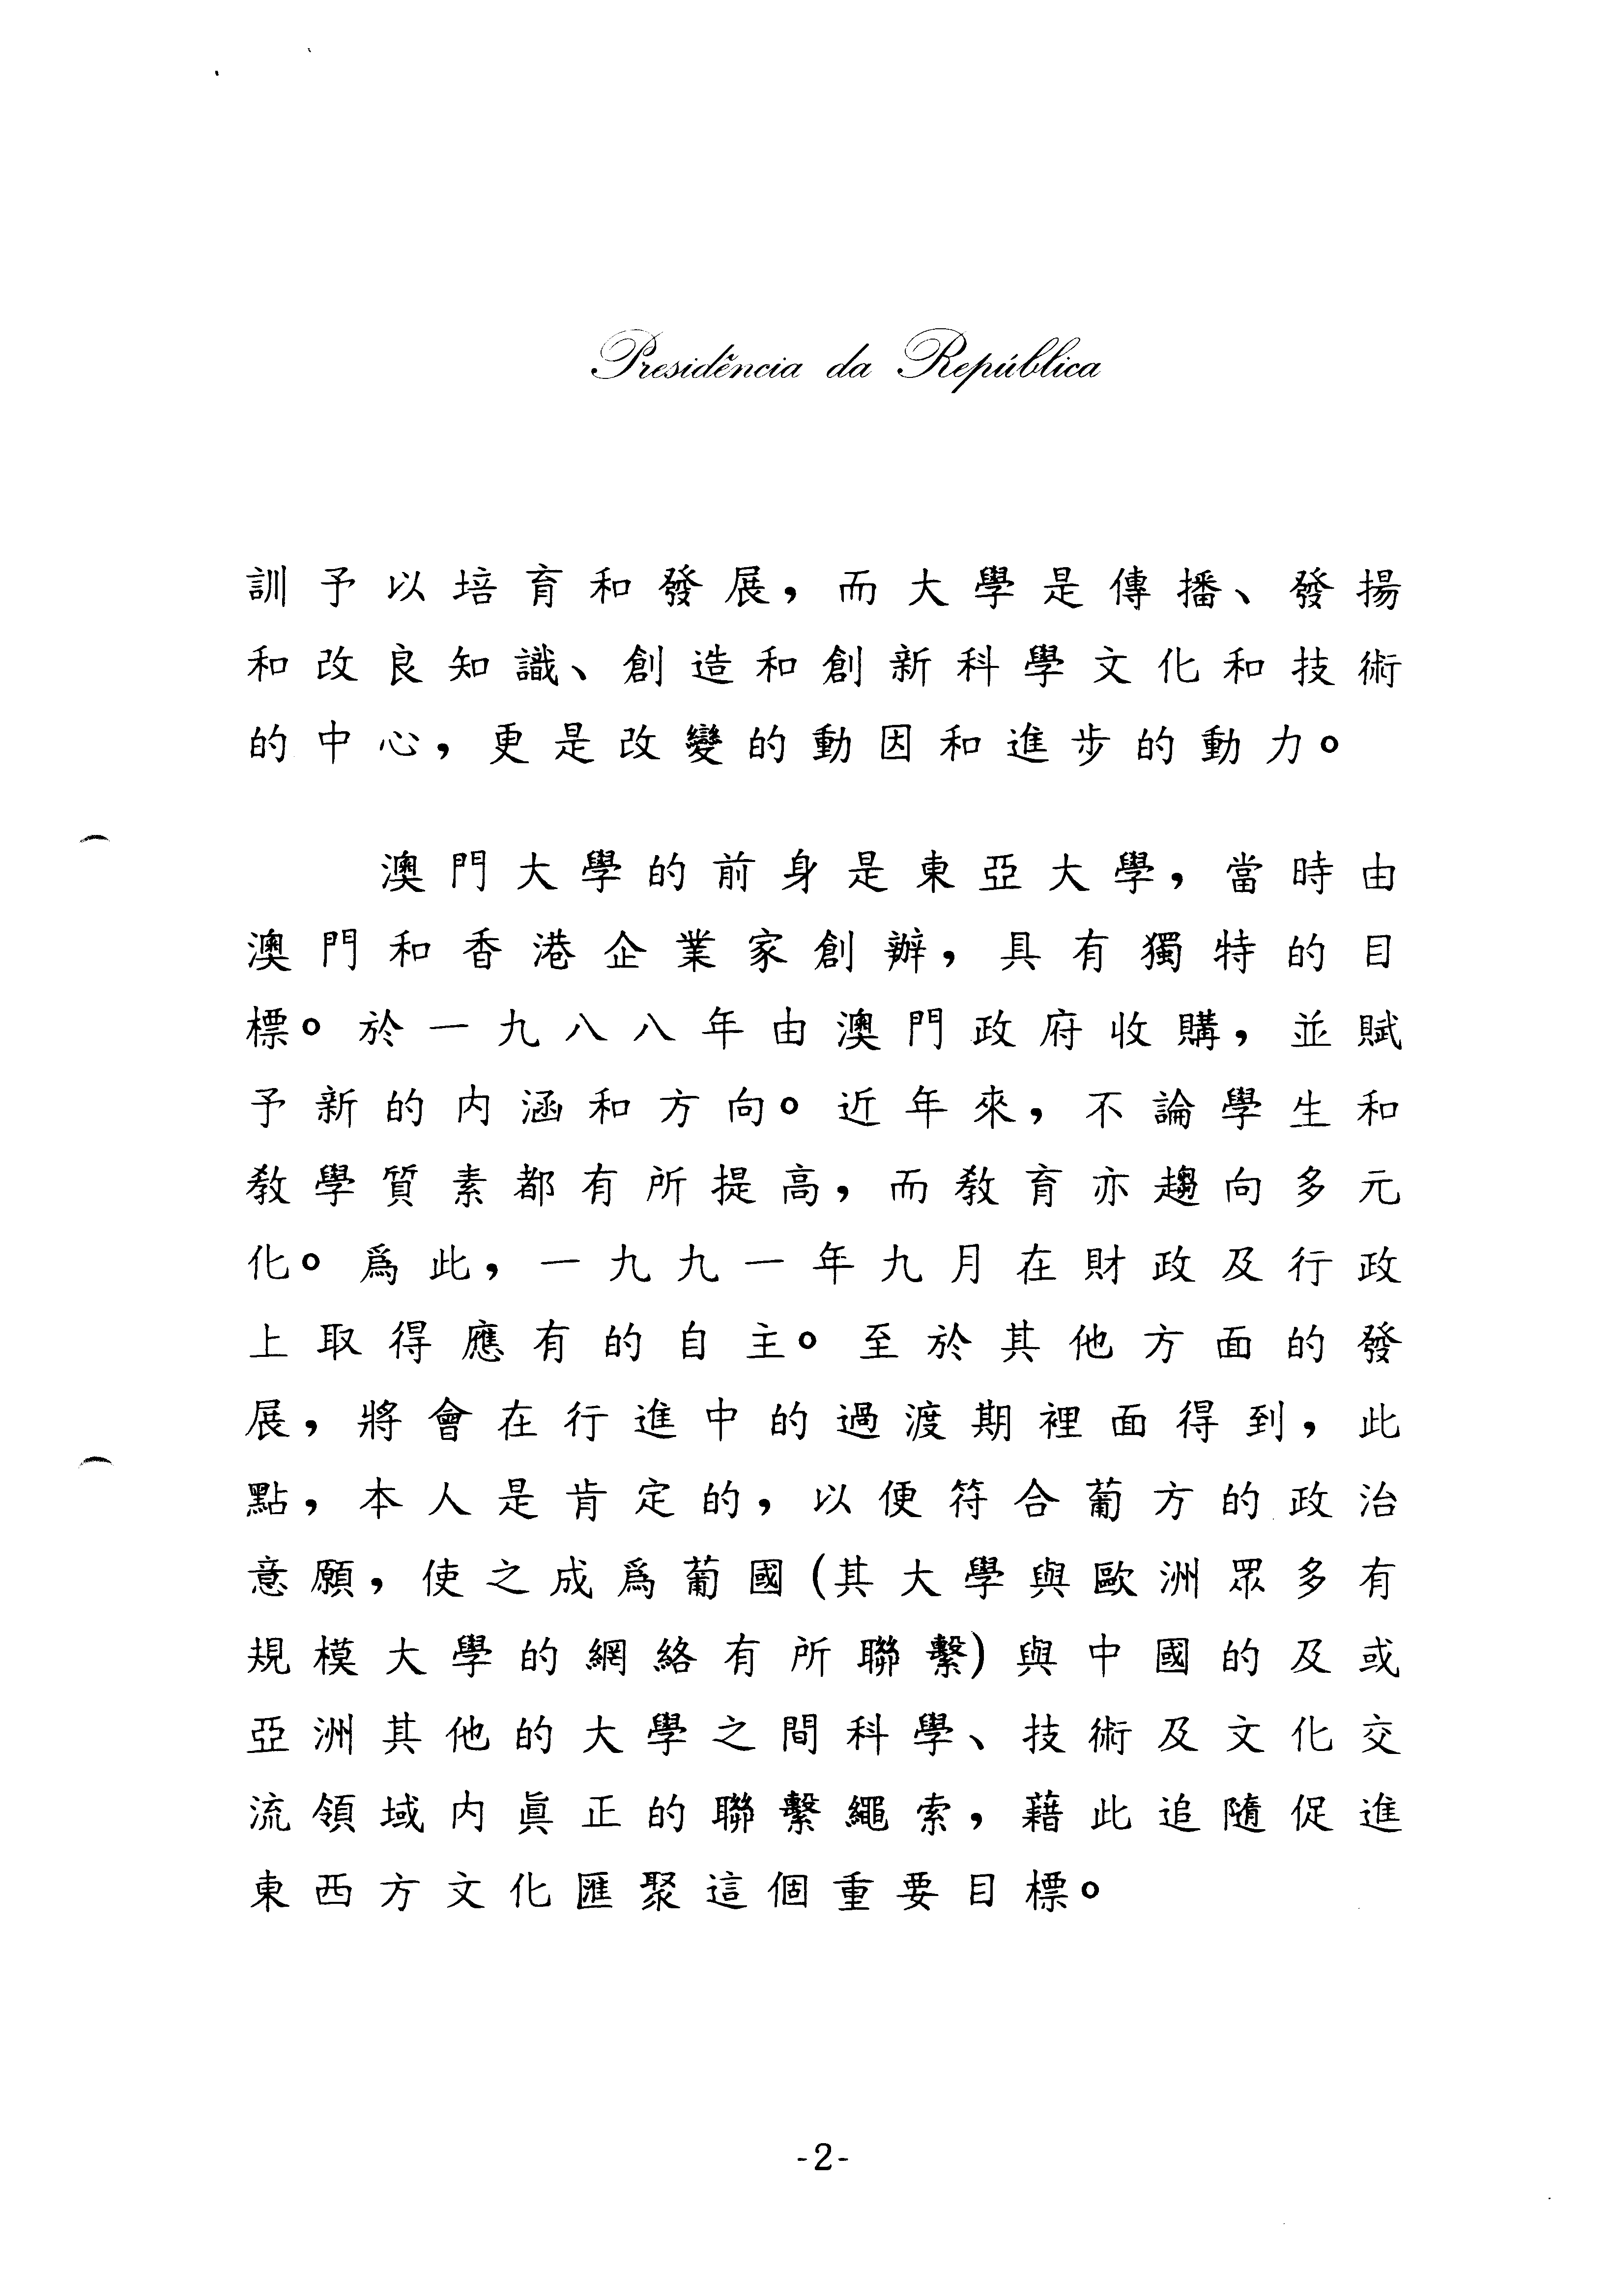 Presidência da República
訓予以培育和發展，而大學是傳播、發揚
和改良知識、創造和創新科學文化和技術
的中心，更是改變的動因和進步的動力。
澳門大學的前身是東亞大學，當時由
澳門和香港企業家創辦，具有獨特的目
標。於一九八八年由澳門政府收購，並賦
予新的內涵和方向。近年來，不論學生和
教學質素都有所提高，而教育亦趨向多元
化。爲此，一九九一年九月在財政及行政
上取得應有的自主。至於其他方面的發
展，將會在行進中的過渡期裡面得到，此
點，本人是肯定的，以便符合葡方的政治
意願，使之成爲葡國(其大學與歐洲眾多有
規模大學的網絡有所聯繫)與中國的及或
亞洲其他的大學之間科學、技術及文化交
流領域內眞正的聯繫繩索，藉此追隨促進
東西方文化匯聚這個重要目標。
-2-